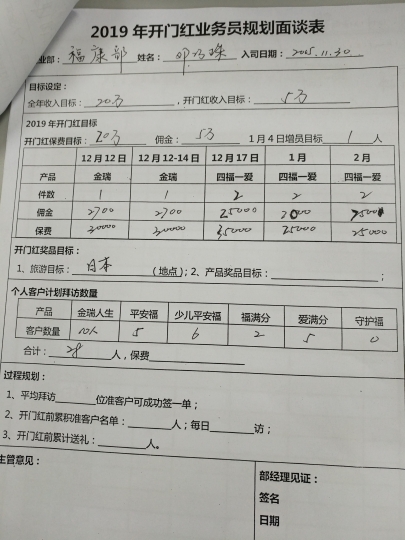 2019 年开门红业务员规划面谈表
业部：福康部 姓名：邓巧珠 入司日期：2015.11.30
目标设定：
全年收入目标：20万，开门红收入目标：5万
2019 年开门红目标
开门红保费目标：20万 佣金：5万 1 月 4 日增员目标 1 人
12 月 12 日 12 月 12-14 日 12 月 17 日 1 月 2 月
产品 金瑞 金瑞 四福一爱 四福一爱 四福一爱
件数 1 1 2 2 2
佣金 2700 2700 25000
保费 30000 30000 35000 25000 25000
开门红奖品目标：
1、旅游目标：日本（地点）；2、产品奖品目标：；
个人客户计划拜访数量
产品 金瑞人生 平安福 少儿平安福 福满分 爱满分 守护福
客户数量 10人 5 6 2 5 0
合计：28人，保费
过程规划：
1、平均拜访位准客户可成功签一单；
2、开门红前累积准客户名单：人；每日访；
3、开门红前累计送礼：人。
主管意见：
部经理见证：
签名
日期